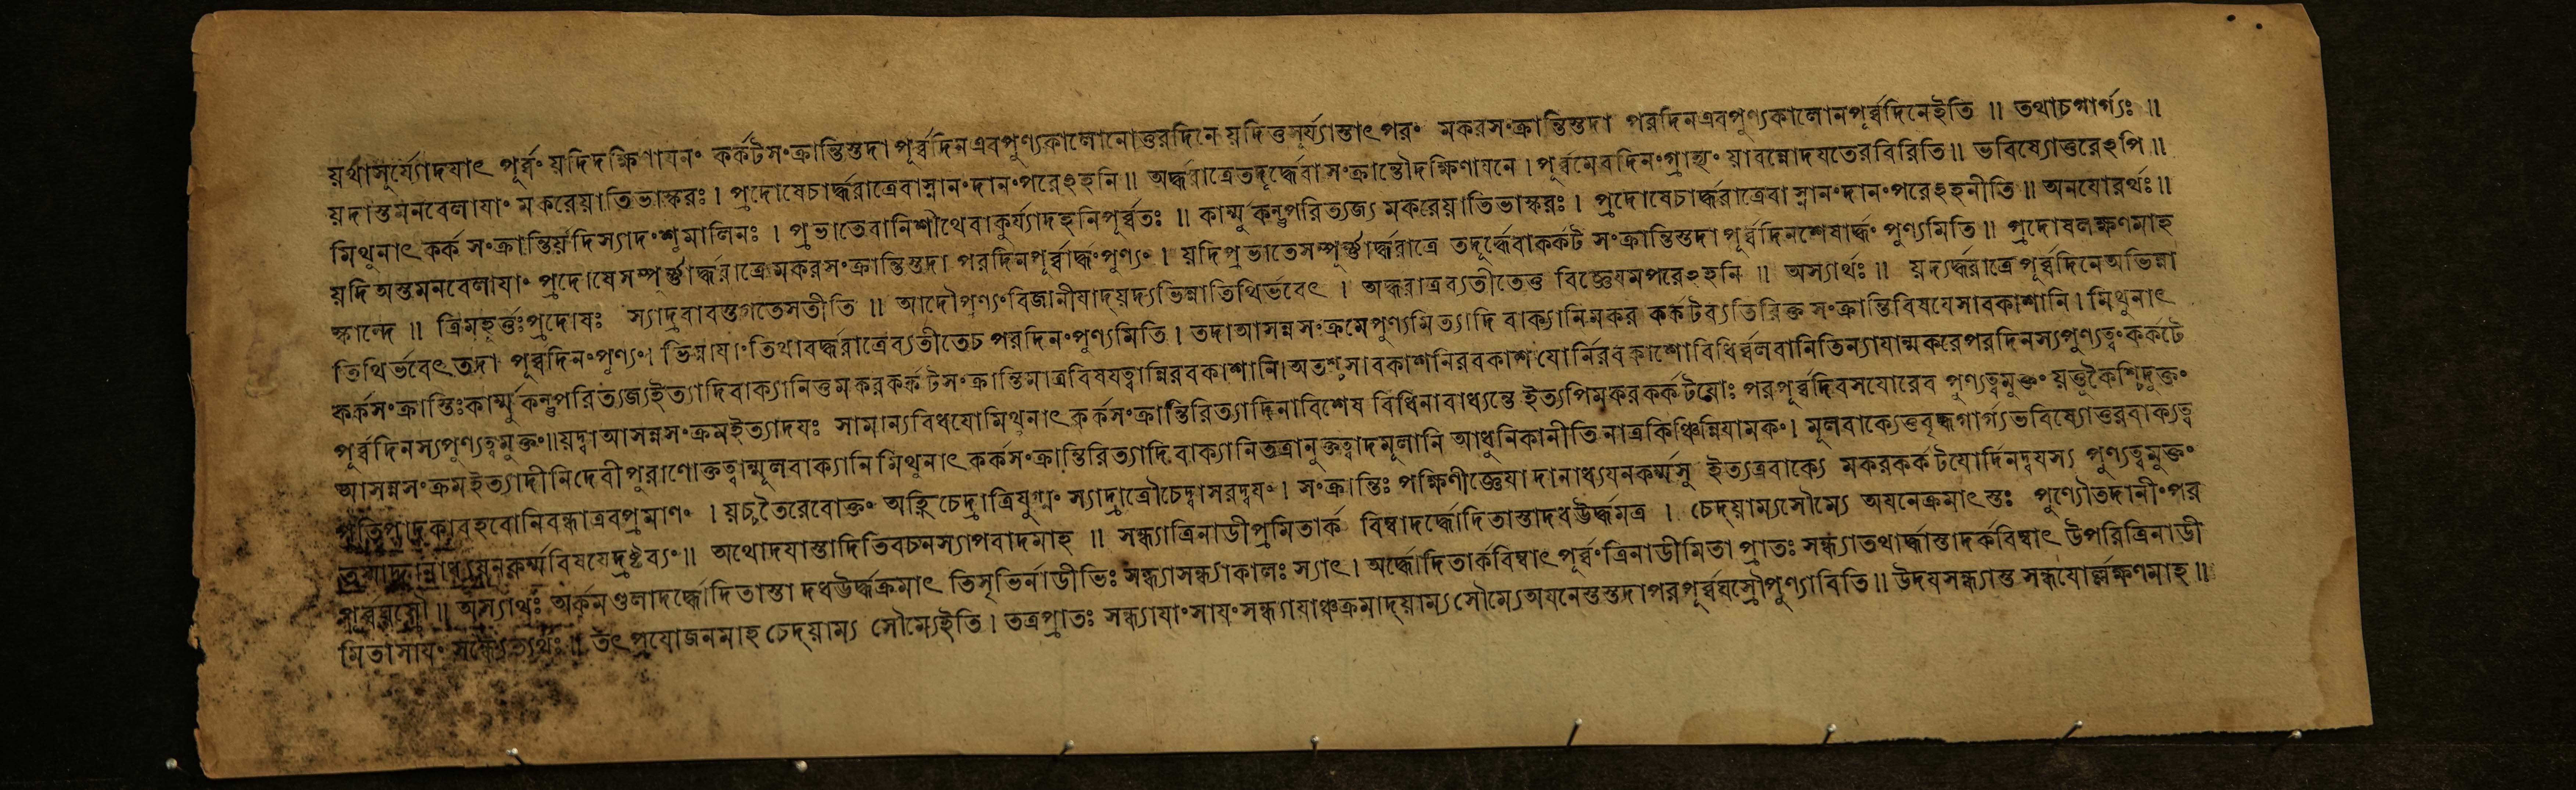 য়থাসূর্য্যোদযাৎ পূর্ব্বং য়দিদক্ষিণাযনং কর্কটসংক্রান্তিস্তদা পূর্ব্বদিনএবপুণ্যকালোনোত্তরদিনে য়দিত্তসূর্য্যাস্তাৎপরং মকরসংক্রান্তিস্তদা পরদিনএবপুণ্যকালোনপূর্ব্বদিনেইতি ॥ তথাচগার্গ্যঃ ॥
য়দাস্তমনবেলাযাং মকরেয়াতিভাস্করঃ । প্রদোষেচার্দ্ধরাত্রেবাস্নানংদানংপরেঽহনি ॥ অর্দ্ধরাত্রেতদূর্দ্ধেবাসংক্রান্তৌদক্ষিণাযনে । পূর্ব্বমেবদিনংগ্রাহ্যং য়াবন্নোদযতেরবিরিতি ॥ ভবিষ্যোত্তরেঽপি ॥
মিথুনাৎ কর্কসংক্রান্তির্য়দিস্যাদংশুমালিনঃ । প্রভাতেবানিশীথেবাকুর্য্যাদহনিপূর্ব্বতঃ ॥ কার্ম্মুকন্তুপরিত্যজ্য মকরেয়াতিভাস্করঃ । প্রদোষেচার্দ্ধরাত্রেবা স্নানংদানংপরেঽহনীতি ॥ অনযোরর্থঃ ॥
য়দি অস্তমনবেলাযাং প্রদোষেসম্পূর্ণ্ণার্দ্ধরাত্রেমকরসংক্রান্তিস্তদা পরদিনপূর্ব্বার্দ্ধংপুণ্যং । য়দিপ্রভাতেসম্পূর্ণ্ণার্দ্ধরাত্রে তদূর্দ্ধেবাকর্কট সংক্রান্তিস্তদা পূর্ব্বদিনশেষার্দ্ধং পুণ্যমিতি ॥ প্রদোষলক্ষণমাহ
স্কান্দে ॥ ত্রিমহূর্ত্তঃপ্রদোষঃ স্যাদ্রবাবস্তগতেসতীতি ॥ আদৌপুণ্যংবিজানীযাদ্য়দ্যভিন্নাতিথির্ভবেৎ । অর্দ্ধরাত্রব্যতীতেত্ত বিজ্ঞেযমপরেঽহনি ॥ অস্যার্থঃ ॥ য়দ্যর্দ্ধরাত্রেপূর্ব্বদিনেঅভিন্না
তিথির্ভবেৎতদা পূর্ব্বদিনংপুণ্যং। ভিন্নাযাংতিথাবর্দ্ধরাত্রেব্যতীতেচ পরদিনংপুণ্যমিতি । তদাআসন্নসংক্রমেপুণ্যমিত্যাদি বাক্যানিমকর কর্কটব্যতিরিক্ত সংক্রান্তিবিষযেসাবকাশানি। মিথুনাৎ
কর্কসংক্রান্তিঃকার্ম্মুকন্তুপরিত্যজ্যইত্যাদিবাক্যানিত্তমকরকর্কটসংক্রান্তিমাত্রবিষযত্বান্নিরবকাশানি।অতশ্চসাবকাশনিরবকাশযোর্নিরবকাশোবিধির্ব্বলবানিতিন্যাযান্মকরেপরদিনস্যপুণ্যত্বংকর্কটে
পূর্ব্বদিনস্যপুণ্যত্বমুক্তং॥য়দ্বাআসন্নসংক্রমইত্যাদযঃ সামান্যবিধযোমিথুনাৎকর্কসংক্রান্তিরিত্যাদিনাবিশেষ বিধিনাবাধ্যন্তে ইত্যপিমকরকর্কটয়োঃ পরপূর্ব্বদিবসযোরেব পুণ্যত্বমুক্তং য়ত্তুকৈশ্চিদুক্তং
আসন্নসংক্রমইত্যাদীনিদেবীপুরাণোক্তত্বান্মূলবাক্যানি মিথুনাৎ কর্কসংক্রান্তিরিত্যাদি বাক্যানিতত্রানুক্তত্বাদমূলানি আধুনিকানীতিনাত্রকিঞ্চিন্নিযামকং। মূলবাক্যেত্তবৃদ্ধগার্গ্যভবিষ্যোত্তরবাক্যত্ব
প্রতিপাদকাবহবোনিবন্ধাত্রবপ্রমাণং । য়চ্চতৈরেবোক্তং অহ্নিচেদ্রাত্রিযুগ্মং স্যাদ্রাত্রৌচেদ্বাসরদ্বযং। সংক্রান্তিঃ পক্ষিণীজ্ঞেযা দানাধ্যযনকর্ম্মসু ইত্যত্রবাক্যে মকরকর্কটযোর্দিনদ্বযস্য পুণ্যত্বমুক্তং
বিষযেদ্রষ্টব্যং॥ অথোদযাস্তাদিতিবচনস্যাপবাদমাহ ॥ সন্ধ্যাত্রিনাডীপ্রমিতার্ক বিম্বাদর্দ্ধোদিতাস্তাদধঊর্দ্ধমত্র । চেদ্য়াম্যসৌম্যে অযনেক্রমাৎস্তঃ পুণ্যৌতদানীংপর
পূর্ব্বঘস্রৌ ॥ অস্যার্থঃ অর্কমণ্ডলাদর্দ্ধোদিতাস্তা দধঊর্দ্ধক্রমাৎ তিসৃভির্নাডীভিঃ সন্ধ্যাসন্ধ্যাকালঃ স্যাৎ। অর্দ্ধোদিতার্কবিম্বাৎ পূর্ব্বংত্রিনাডীমিতা প্রাতঃ সন্ধ্যাতথার্দ্ধাস্তাদর্কবিম্বাৎ উপরিত্রিনাডী
মিতাসাযং সন্ধ্যেত্যর্থঃ॥ তৎপ্রযোজনমাহ চেদ্য়াম্য সৌম্যেইতি । তত্রপ্রাতঃ সন্ধ্যাযাংসাযংসন্ধ্যাযাঞ্চক্রমাদ্য়াম্যসৌম্যেঅযনেস্তস্তদাপরপূর্ব্বঘস্রৌপুণ্যাবিতি ॥ উদযসন্ধ্যাস্ত সন্ধযোর্ল্লক্ষণমাহ ॥